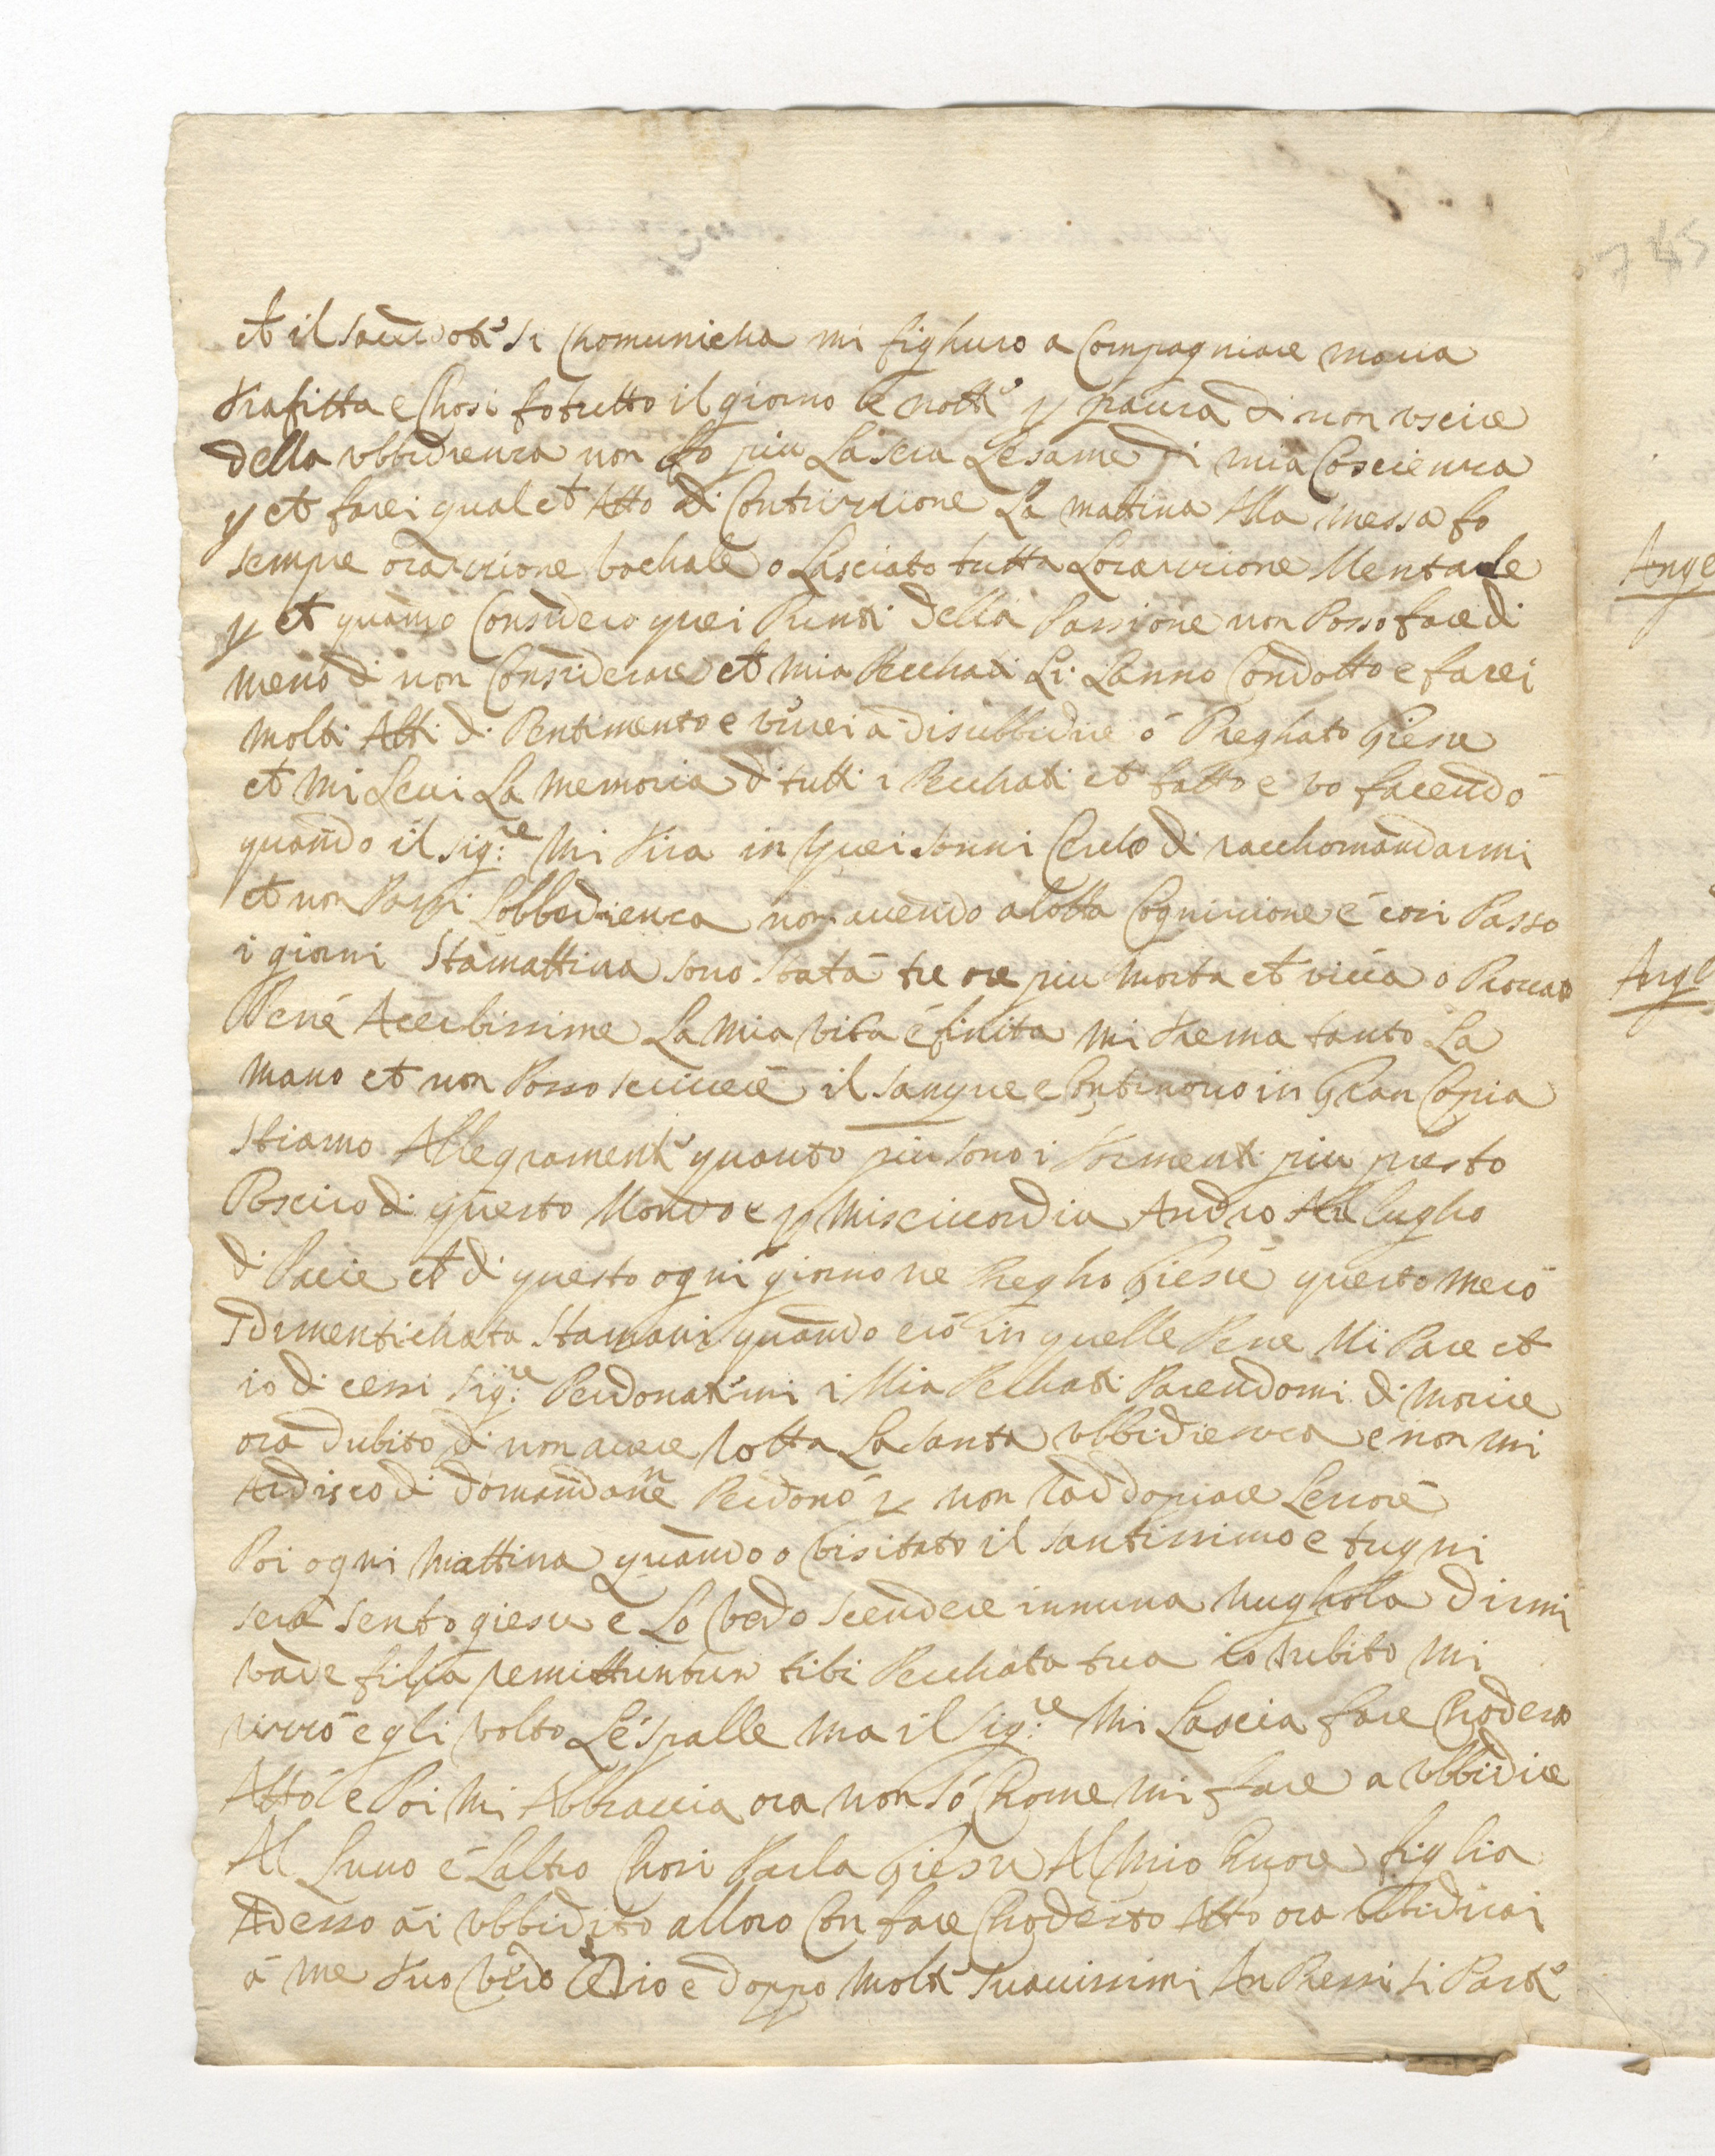 et il sacerdote si Chomunicha mi fighuro a Compagniare maria
trafitta e Chosi fo tutto il giorno le notte p paura di non uscire
della ubbidienza non fo piu La sera Lesame di mia Coscienza
p et farei qual et Atto di Contrizzione La mattina Alla messa fo
sempre orazzione bochale o Lasciato tutta Lorazzione Mentale
p et quando Considero quei Punti della Passione non Posso fare di
meno di non Considerare et mia Pecchati Li Lanno Condotto e farei
molti Atti di Pentimento e verrei a disubbidire ó Preghato Giesu
et mi Levi La memoria di tutti i Pecchati et fatto e vo facendo
quando il Sig:re Mi tira in quei sonni Cercho di racchomandarmi
et non Passi Lobbedienza non avendo alotta Cognizione é cosi Passo
i giorni Stamattina sono stata tre ore piu morta et viva o Provato
Pene Acerbissime La mia vita é finita mi trema tanto La
mano et non Posso scrivere il sangue e Continovo in Gran Copia
Stiamo Allegramente quanto piu sono i tormenti piu presto
Uscirò di questo Mondo e p Misericordia Andro Al lugho
di Pacie et di questo ogni giorno ne Pregho Giesu questo mero
Idimentichata Stamani quando ero in quelle Pene Mi Pare et
io dicessi Sig:re Perdonatemi i Mia Pechati Parendomi di morire
ora dubito di non avere rotta La Santa ubbidienza e non mi
Ardisco di domandanne Perdono p non raddopiare Lerrore
Poi ogni mattina quando o visitato il santissimo e tugni
sera sento giesu e Lo vedo scendere innuna nughola dirmi
vade filia remittuntur tibi Pecchata tua io subito mi
rizzo e gli volto Le spalle ma il Sig:re Mi Lascia fare Chodesto
Atto e Poi Mi Abbraccia ora non só Chome mi fare a ubbidire
Al Luno é Laltro Chosi Parla Giesu Al Mio Cuore figlia
Adesso ái ubbidito alloro Con fare Chodesto Atto ora ubbidirai
á me tuo vero Dio e doppo molti suavissimi Anpressi si Parte
Ange
Ange